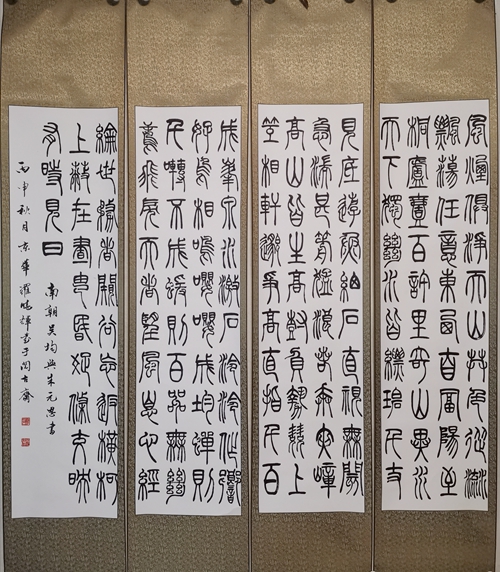 風煙俱淨天山共色從流
飄蕩任意東西自富陽至
桐廬壹百許里奇山異水
天下獨絕水皆縹碧千丈
見底游魚細石直視無礙
急湍甚箭猛浪若奔夾嶂
高山皆生寒樹負勢競上
互相軒邈爭高直指千百
成峯泉水激石泠泠作響
好鳥相鳴嚶嚶成韻蟬則
千囀不窮猨則百叫無絕
鳶飛戾天者望峯息心經
綸世務者窺谷忘返橫柯
上蔽在晝猶昏疏條交映
有時見日
南朝吳均與朱元思書
丙申秋月京華曉輝書于問古齋